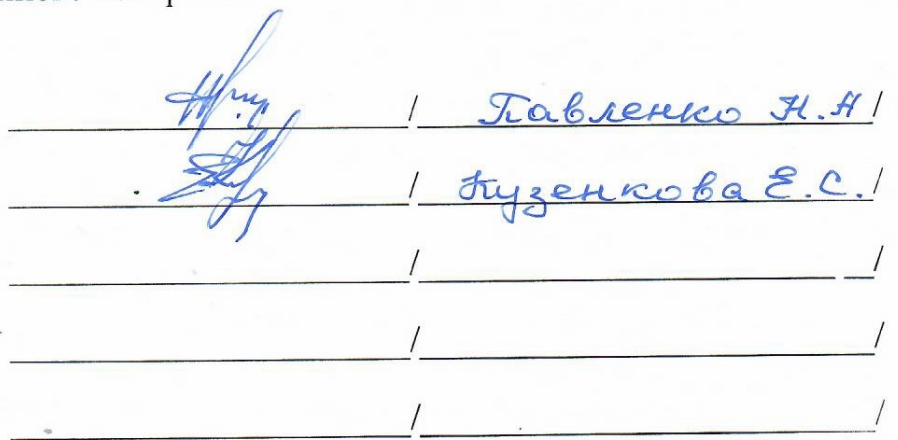 / Павленко Н.Н /
/ Кузенкова Е.С. /
/ /
/ /
/ /